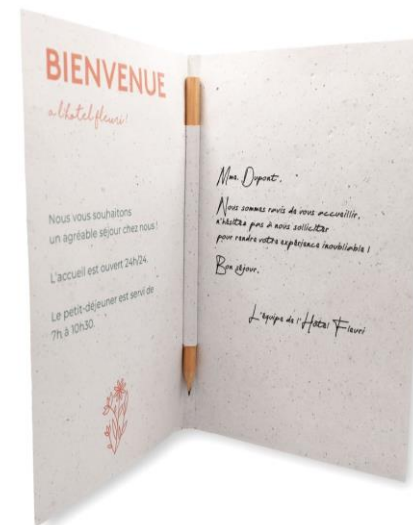 BIENVENUE
a l'hotel fleuri !
Nous vous souhaitons
un agréable séjour chez nous !
L'accueil est ouvert 24h/24.
Le petit-déjeuner est servi de
7h à 10h30.
Mme. Dupont.
Nous sommes ravis de vous accueillir,
n'hésitez pas à nous solliciter
pour rendre votre expérience inoubliable !
Bon séjour.
L'équipe de l'Hôtel Fleuri